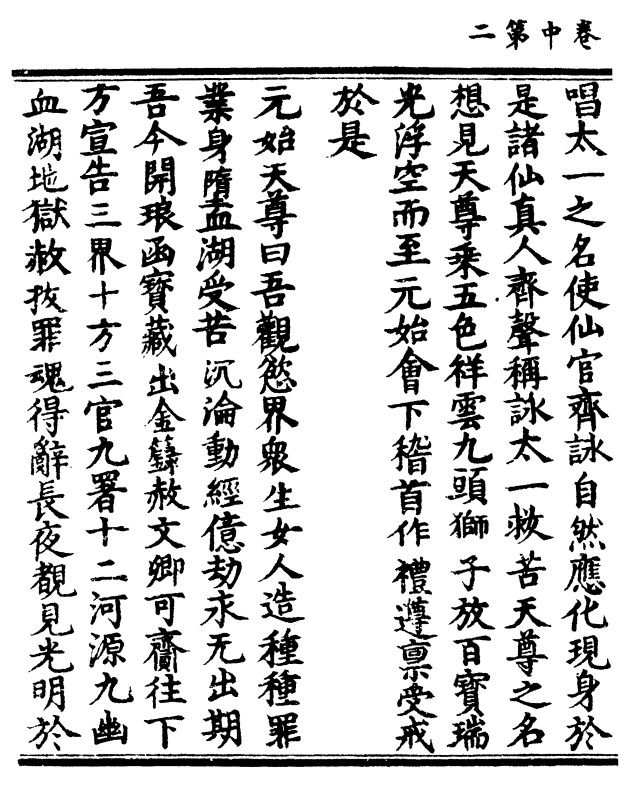 卷中第二
唱太一之名使仙官齊詠自然應化現身於
是諸仙真人齊聲稱詠太一救苦天尊之名
想見天尊乘五色祥雲九頭獅子放百寶瑞
光浮空而至元始會下稽首作禮遵禀受戒
於是
元始天尊曰吾觀慾界衆生女人造種種罪
業身墮血湖受苦沉淪動經億劫永无出期
吾今開琅函寶藏出金籙赦文卿可齎往下
方宣告三界十方三官九署十二河源九幽
血湖地獄赦拔罪魂得辭長夜覩見光明於